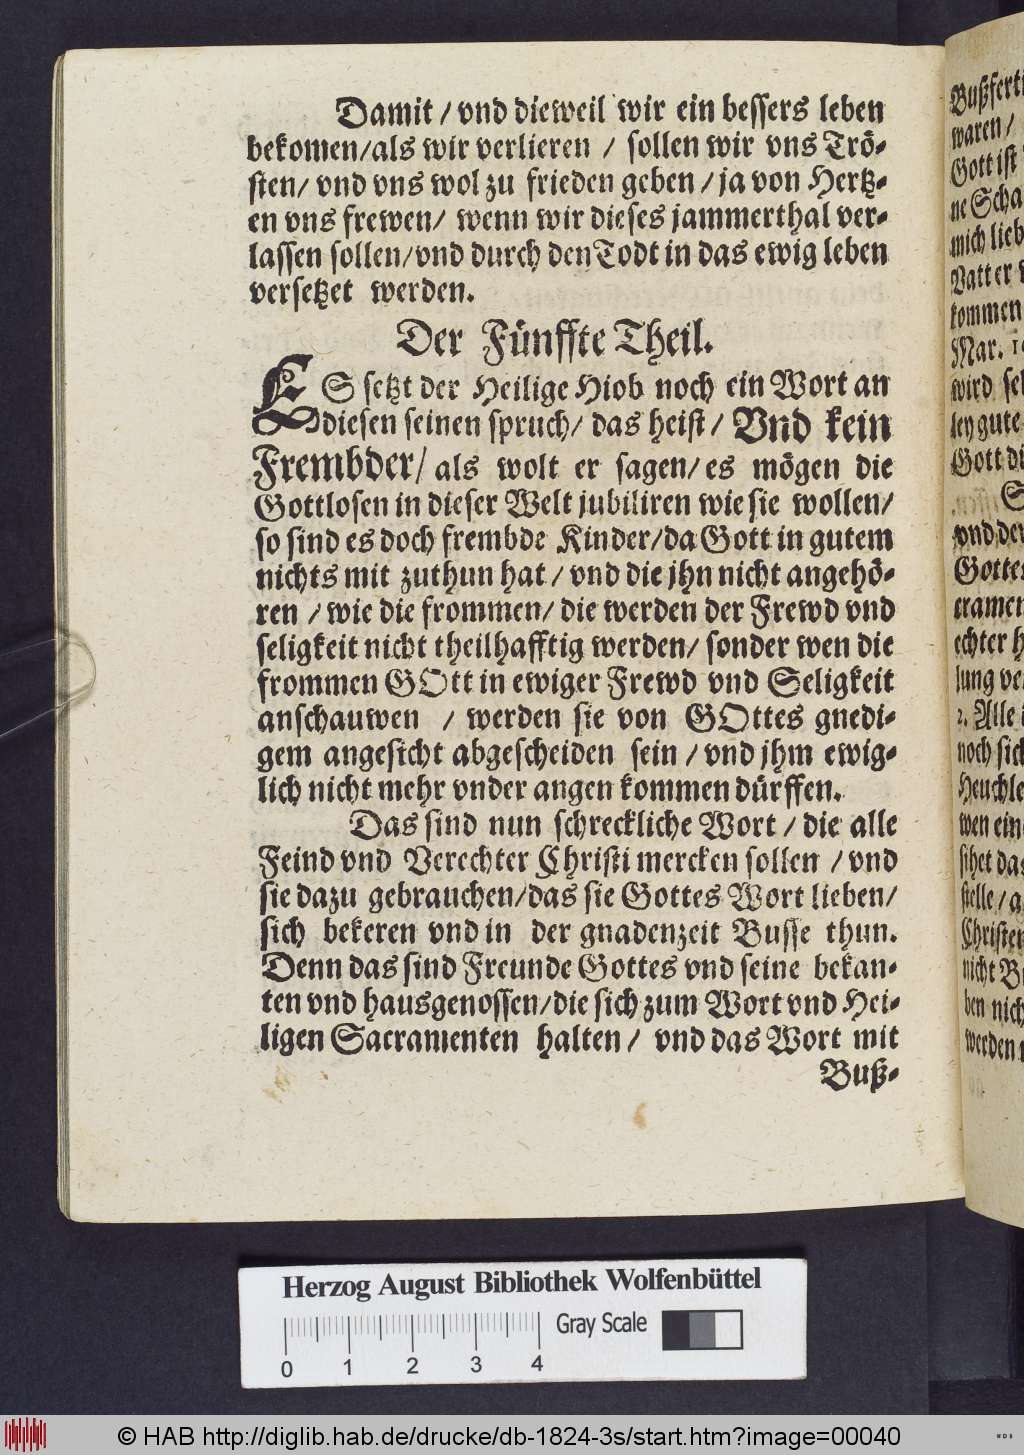 Damit / vnd dieweil wir ein bessers leben
bekomen/als wir verlieren / sollen wir vns Trö-
sten/ vnd vns wol zu frieden geben / ja von Hertz-
en vns frewen/ wenn wir dieses jammerthal ver-
lassen sollen/vnd durch den Todt in das ewig leben
versetzet werden.
Der Fünffte Theil.
ES setzt der Heilige Hiob noch ein Wort an
diesen seinen spruch/ das heist/ Vnd kein
Frembder/ als wolt er sagen/ es mögen die
Gottlosen in dieser Welt jubiliren wie sie wollen/
so sind es doch frembde Kinder/da Gott in gutem
nichts mit zuthun hat / vnd die jhn nicht angehö-
ren / wie die frommen/ die werden der Frewd vnd
seligkeit nicht theilhafftig werden/ sonder wen die
frommen GOtt in ewiger Frewd vnd Seligkeit
anschauwen / werden sie von GOttes gnedi-
gem angesicht abgescheiden sein / vnd jhm ewig-
lich nicht mehr vnder angen kommen dürffen.
Das sind nun schreckliche Wort / die alle
Feind vnd Verechter Christi mercken sollen / vnd
sie dazu gebrauchen/das sie Gottes Wort lieben/
sich bekeren vnd in der gnadenzeit Busse thun.
Denn das sind Freunde Gottes vnd seine bekan-
ten vnd hausgenossen/die sich zum Wort vnd Hei-
ligen Sacramenten halten / vnd das Wort mit
Buß-
Bußferti
waren /
Gott ist
ne Scha
mich lieb
Vatter
kommen
Mar. 1
wird
ley gute
Gott di
vnd der
Gotte
cramen
echter h
lung ver
2. Alle
noch sich
Heuchle
wen ein
sihet das
stelle / a
Christen
nicht
ben nich
werden
Herzog August Bibliothek Wolfenbüttel
0 1 2 3 4 Gray Scale
© HAB http://diglib.hab.de/drucke/db-1824-3s/start.htm?image=00040